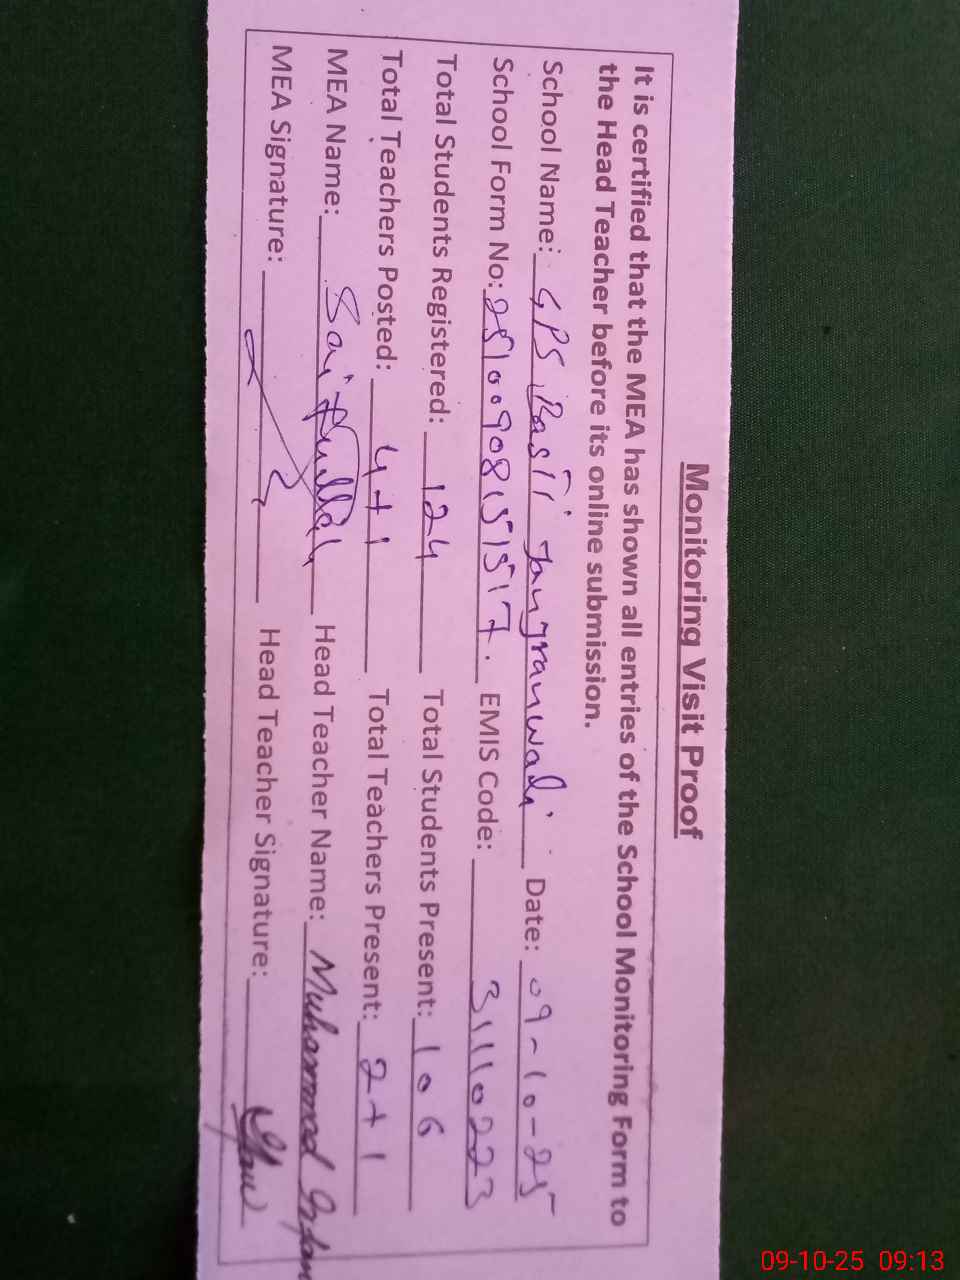 Monitoring Visit Proof
It is certified that the MEA has shown all entries of the School Monitoring Form to
the Head Teacher before its online submission.
School Name: GPS Basti Jangranwali Date: 09-10-25
School Form No: 2510090815517. EMIS Code: 31110223
Total Students Registered: 124 Total Students Present: 106
Total Teachers Posted: 4+1 Total Teachers Present: 2+1
MEA Name: Saifullah Head Teacher Name: Muhammad Irfan
MEA Signature: Head Teacher Signature:
09-10-25 09:13